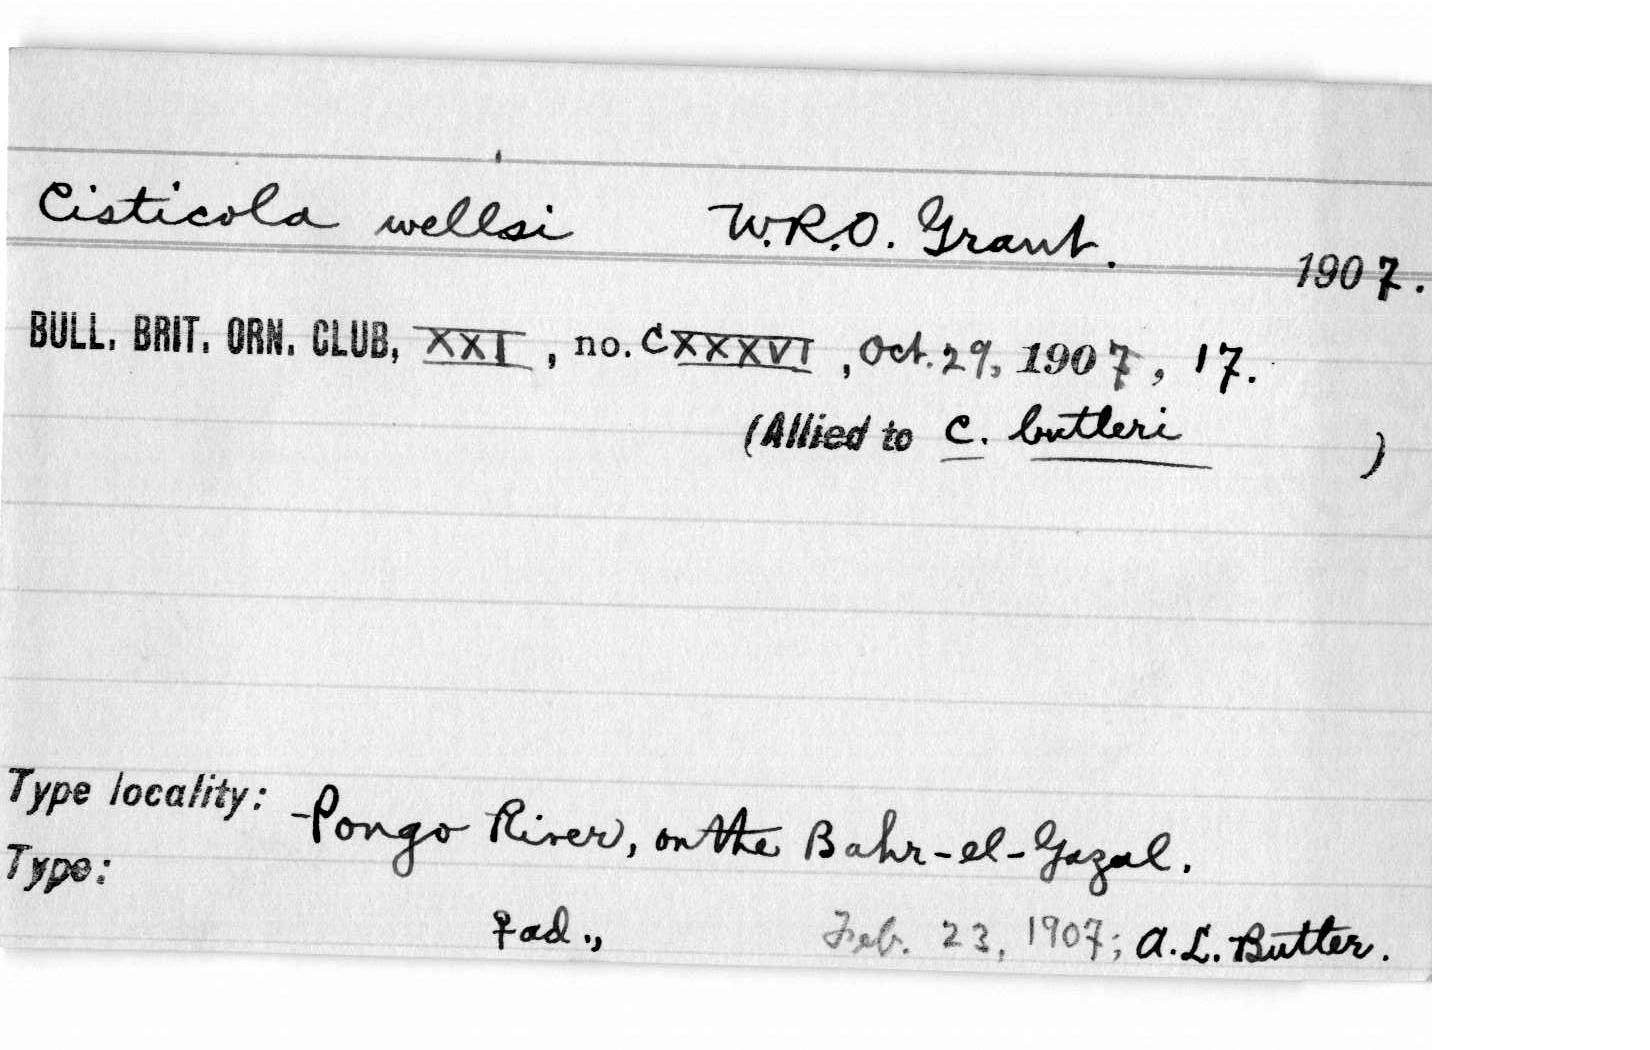 Cisticola wellsi W.R.O. Grant. 1907.
BULL. BRIT. ORN. CLUB, XXI, no. CXXXVI, Oct. 29, 1907, 17.
(Allied to C. butleri )
Type locality: Pongo River, on the Bahr-el-Gazal.
Type:
♀ ad., Feb. 23, 1907; A.L. Butler.